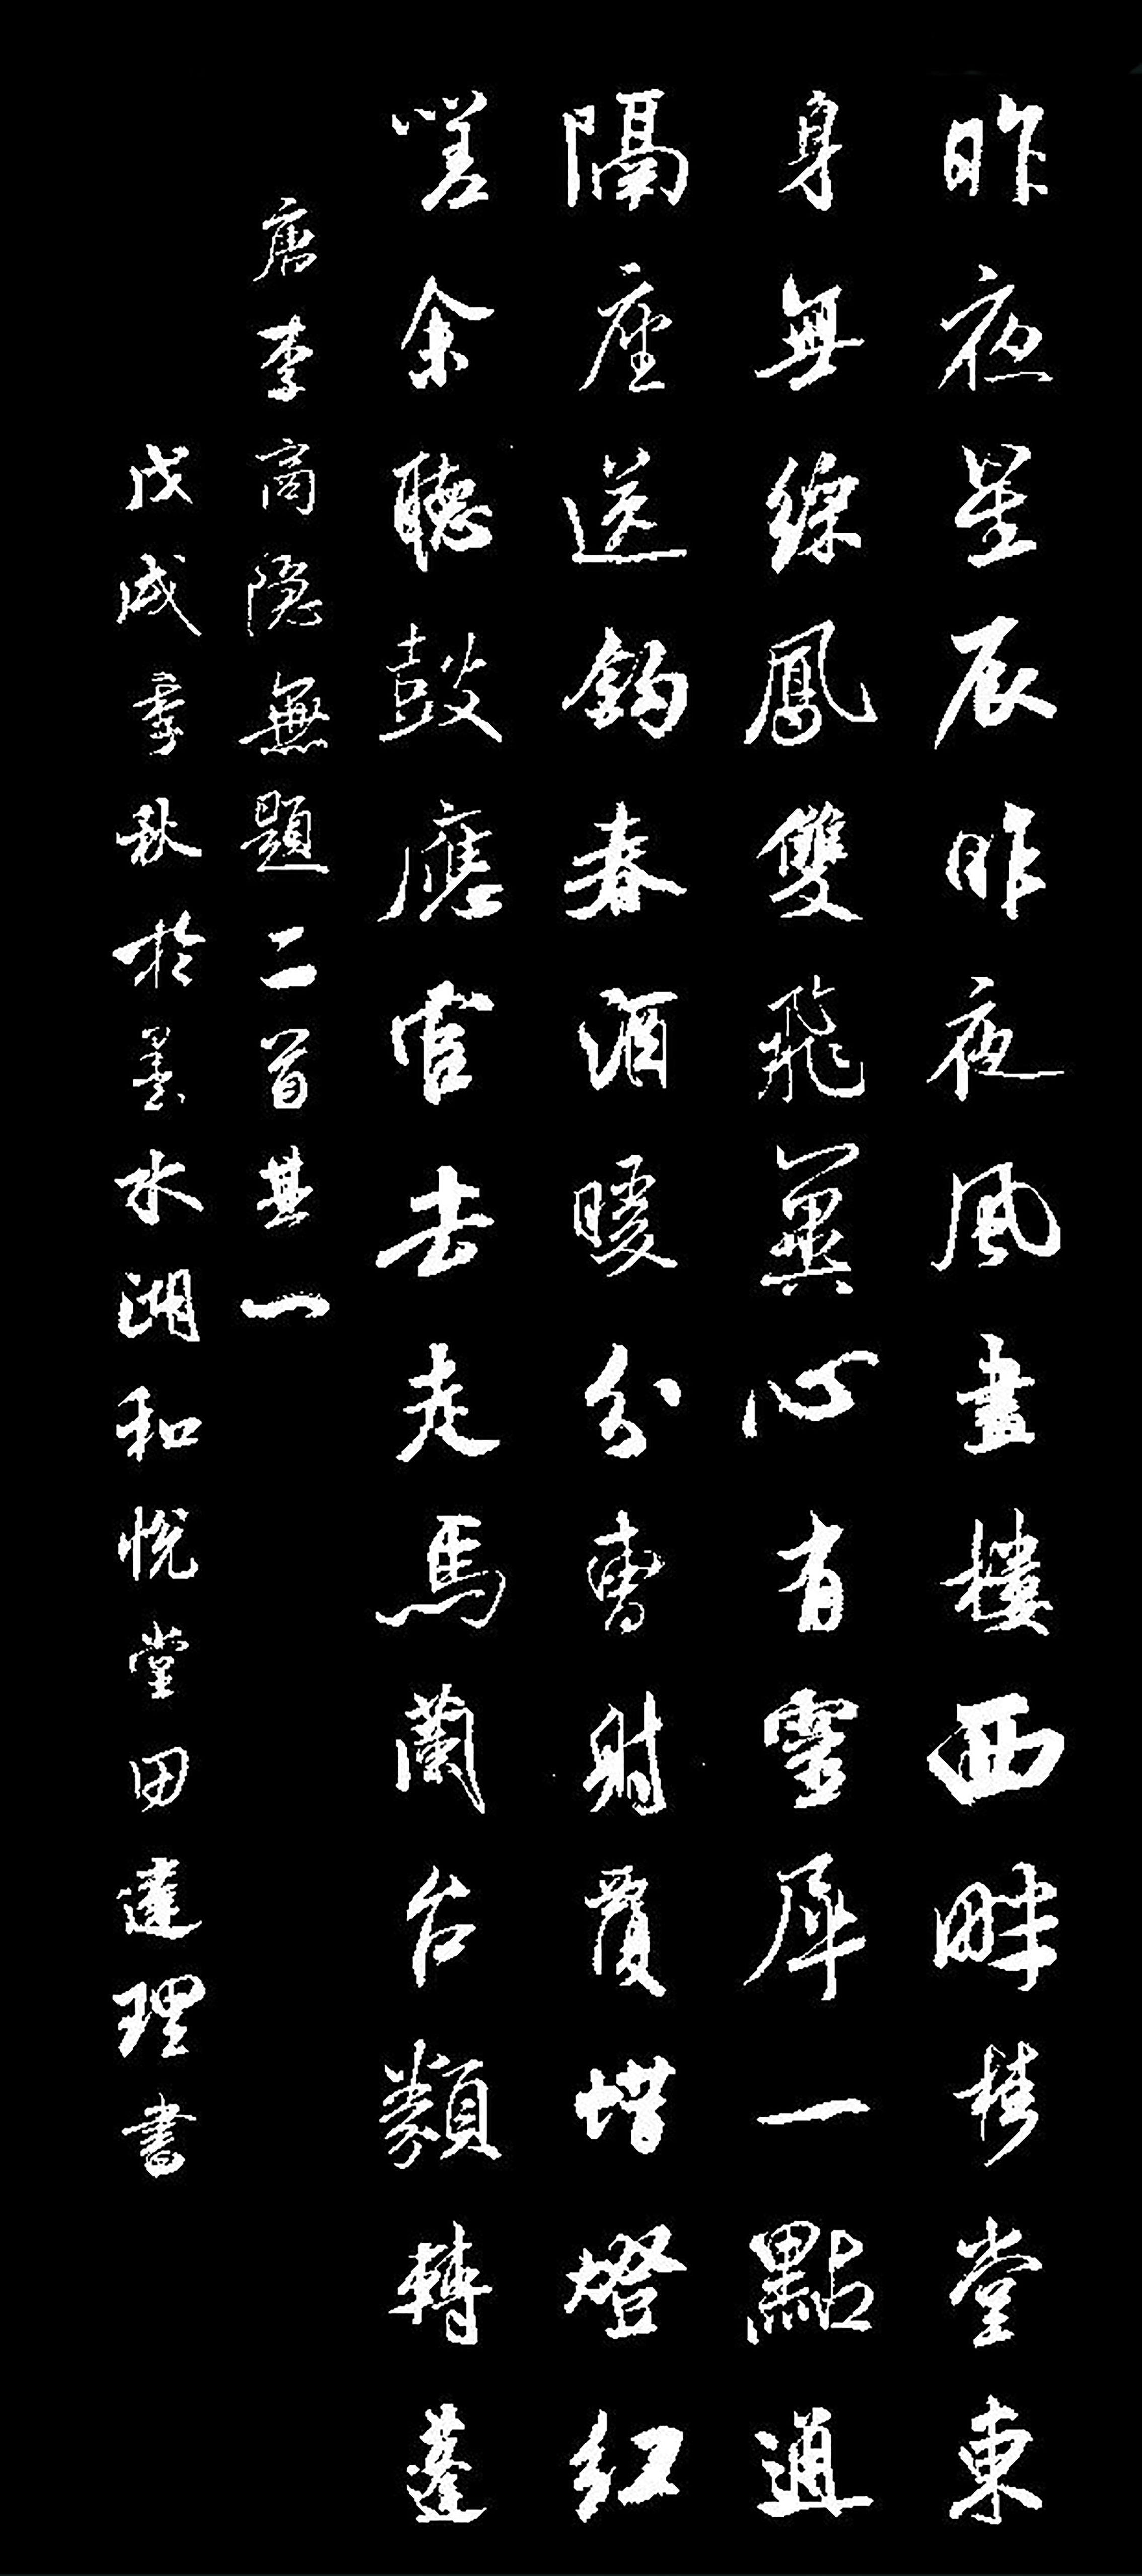 昨夜星辰昨夜風畫樓西畔桂堂東
身無綵鳳雙飛翼心有靈犀一點通
隔座送鈎春酒暖分曹射覆蜡燈紅
嗟余聽鼓應官去走馬蘭台類轉蓬
唐李商隱無題二首其一
戊戌季秋於墨水湖和悅堂田達理書